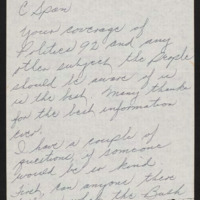 C Span
Your coverage of
Politics 92 and any
other subject the people
should be aware of is
is the best. Many thanks
for the best information
ever.
I have a couple of
questions if someone
would be so kind
First, can anyone there
the Bush